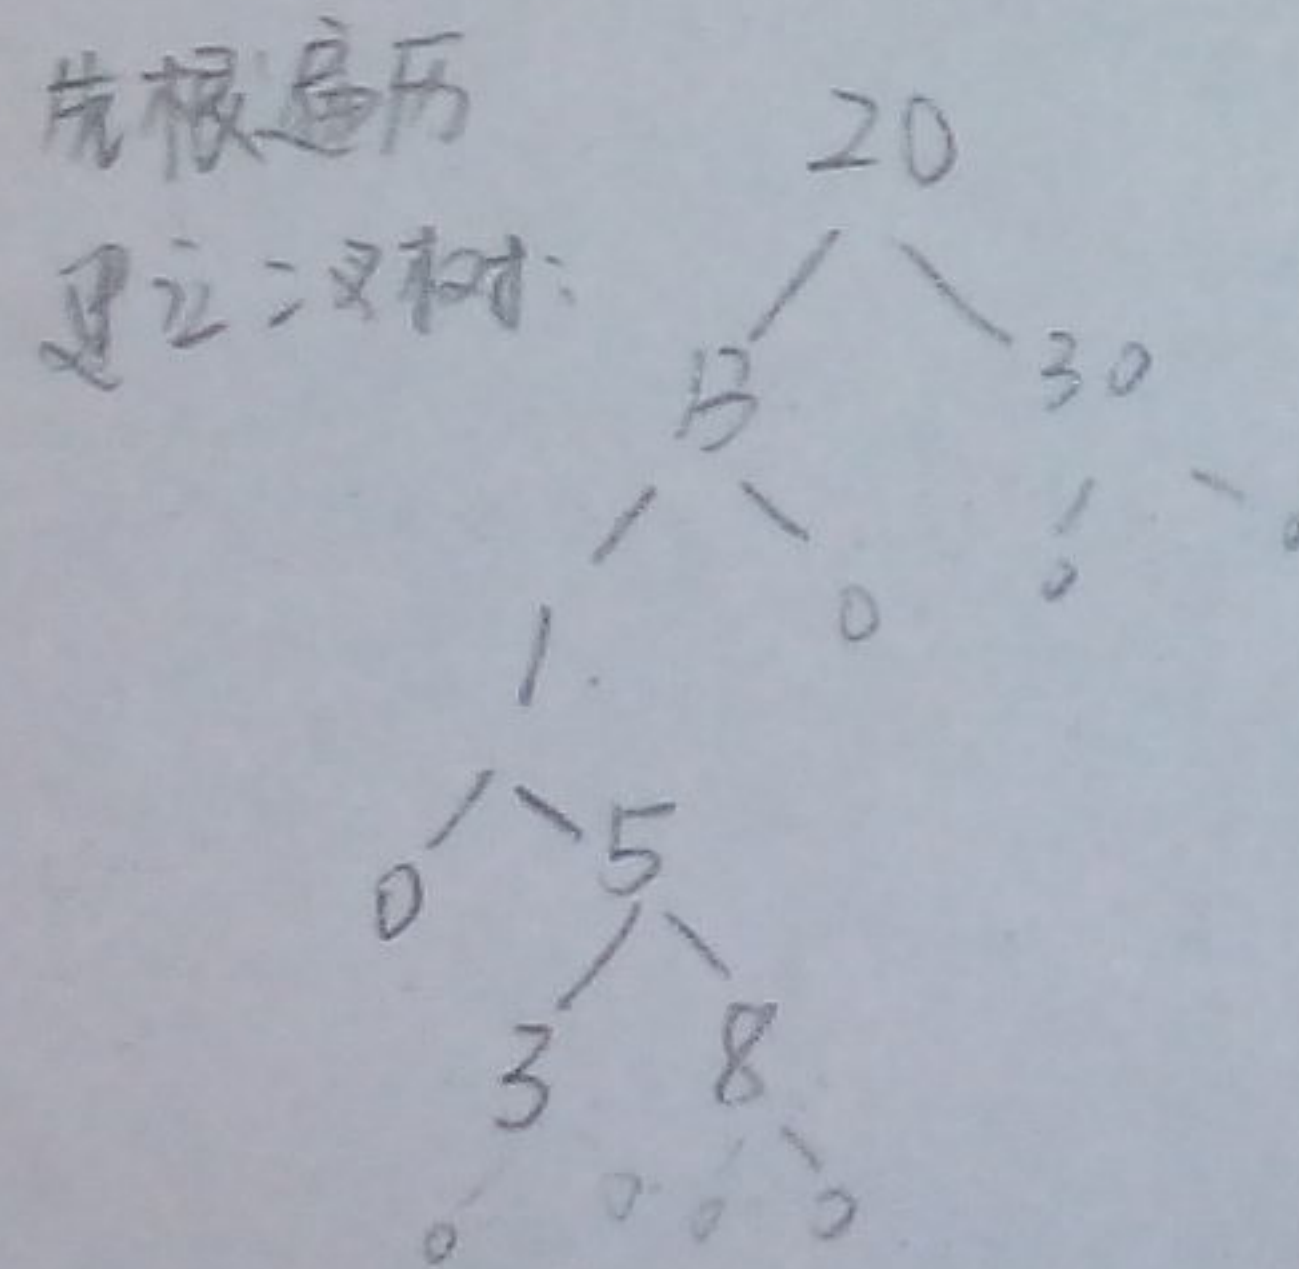 先根遍历
建立二叉树:
20
13 30
1 0 0 0
0 5
3 8
0 0 0 0